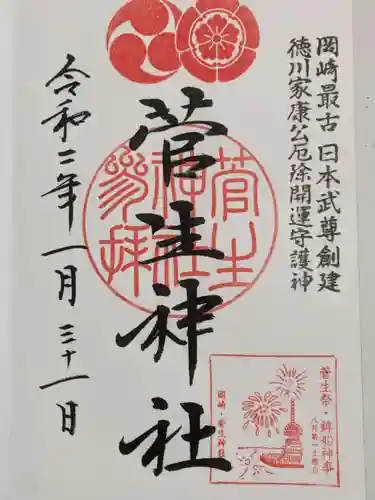 岡崎最古 日本武尊創建
徳川家康公厄除開運守護神
菅生神社
令和二年一月三十一日
菅生神社参拝
菅生祭・鉾船神事
八月第一土曜日
岡崎・菅生神社